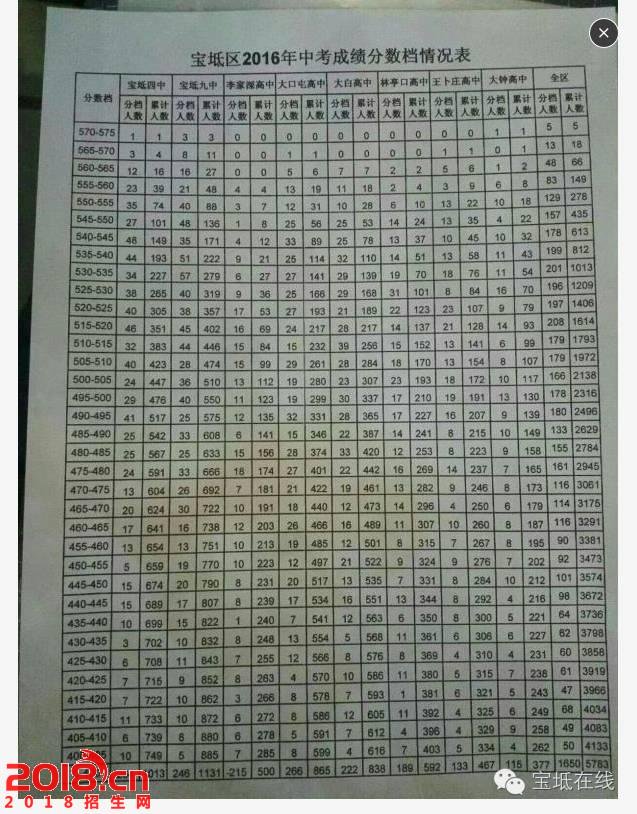 宝坻区2016年中考成绩分数档情况表
分数档 宝坻四中 宝坻九中 李家深高中 大口屯高中 大白高中 林亭口高中 王卜庄高中 大钟高中 全区
分档人数 累计人数 分档人数 累计人数 分档人数 累计人数 分档人数 累计人数 分档人数 累计人数 分档人数 累计人数 分档人数 累计人数 分档人数 累计人数 分档人数 累计人数
570-575 1 1 3 3 0 0 0 0 0 0 0 0 0 0 1 1 5 5
565-570 3 4 8 11 0 0 1 1 0 0 0 0 1 1 0 1 13 18
560-565 12 16 16 27 0 0 5 6 7 7 2 2 5 6 1 2 48 66
555-560 23 39 21 48 4 4 13 19 11 18 2 4 3 9 6 8 83 149
550-555 35 74 40 88 3 7 12 31 10 28 6 10 13 22 10 18 129 278
545-550 27 101 48 136 1 8 25 56 25 53 14 24 13 35 4 22 157 435
540-545 48 149 35 171 4 12 33 89 25 78 13 37 10 45 10 32 178 613
535-540 44 193 51 222 9 21 25 114 32 110 14 51 13 58 11 43 199 812
530-535 34 227 57 279 6 27 27 141 29 139 19 70 18 76 11 54 201 1013
525-530 38 265 40 319 9 36 25 166 29 168 31 101 8 84 16 70 196 1209
520-525 40 305 38 357 17 53 27 193 21 189 22 123 23 107 9 79 197 1406
515-520 46 351 45 402 16 69 24 217 28 217 14 137 21 128 14 93 208 1614
510-515 32 383 44 446 15 84 15 232 39 256 15 152 13 141 6 99 179 1793
505-510 40 423 28 474 15 99 29 261 28 284 18 170 13 154 8 107 179 1972
500-505 24 447 36 510 13 112 19 280 23 307 23 193 18 172 10 117 166 2138
495-500 29 476 40 550 11 123 19 299 30 337 17 210 19 191 13 130 178 2316
490-495 41 517 25 575 12 135 32 331 28 365 17 227 16 207 9 139 180 2496
485-490 25 542 33 608 6 141 15 346 22 387 14 241 8 215 10 149 133 2629
480-485 25 567 25 633 15 156 28 374 33 420 12 253 8 223 9 158 155 2784
475-480 24 591 33 666 18 174 27 401 22 442 16 269 14 237 7 165 161 2945
470-475 13 604 26 692 7 181 21 422 19 461 13 282 9 246 8 173 116 3061
465-470 20 624 30 722 10 191 18 440 12 473 14 296 4 250 6 179 114 3175
460-465 17 641 16 738 12 203 26 466 16 489 11 307 10 260 8 187 116 3291
455-460 13 654 13 751 10 213 19 485 12 501 8 315 7 267 8 195 90 3381
450-455 5 659 19 770 10 223 12 497 21 522 9 324 9 276 7 202 92 3473
445-450 15 674 20 790 8 231 20 517 13 535 7 331 8 284 10 212 101 3574
440-445 15 689 17 807 8 239 17 534 16 551 13 344 8 292 4 216 98 3672
435-440 10 699 15 822 1 240 7 541 12 563 6 350 8 300 5 221 64 3736
430-435 3 702 10 832 8 248 13 554 5 568 11 361 6 306 6 227 62 3798
425-430 6 708 11 843 7 255 12 566 8 576 8 369 4 310 4 231 60 3858
420-425 7 715 9 852 8 263 4 570 10 586 11 380 5 315 7 238 61 3919
415-420 7 722 10 862 3 266 8 578 7 593 1 381 6 321 5 243 47 3966
410-415 11 733 10 872 6 272 8 586 12 605 11 392 4 325 6 249 68 4034
405-410 6 739 8 880 6 278 5 591 7 612 4 396 4 329 9 258 49 4083
10 749 5 885 7 285 8 599 4 616 7 403 5 334 4 262 50 4133
246 1131 -215 500 266 865 222 838 189 592 133 467 115 377 1650 5783
2018.cn
2018招生网
宝坻在线